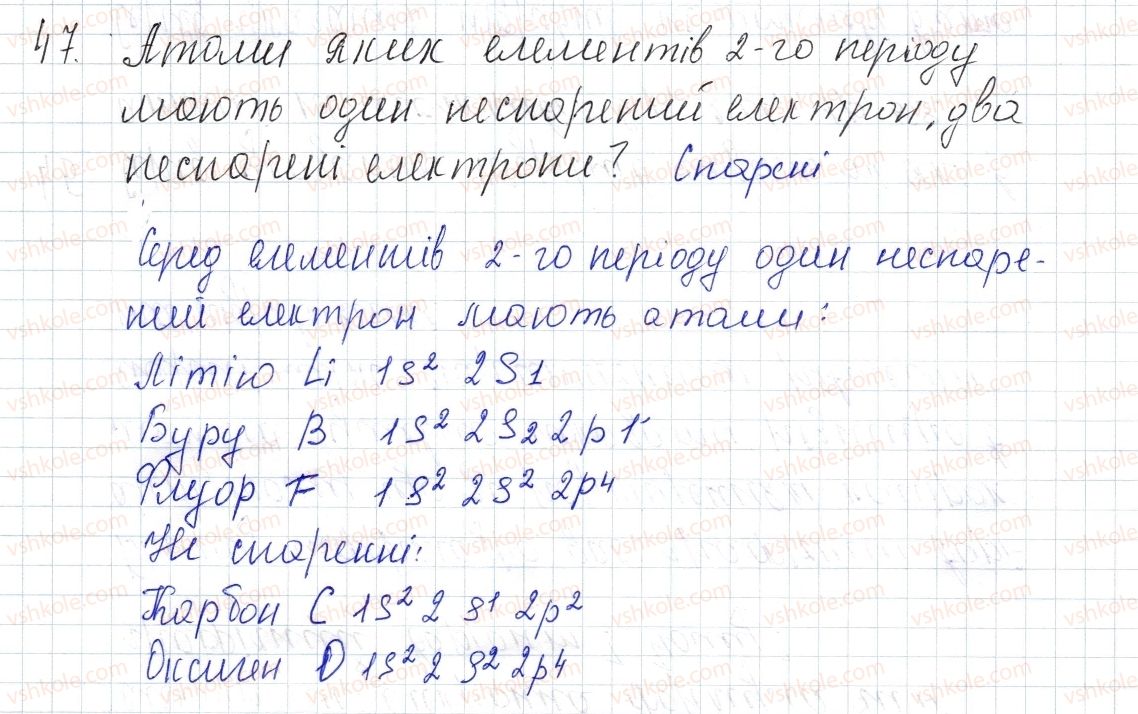 47. Атоми яких елементів 2-го періоду
мають один неспарений електрон, два
неспарені електрони? Спарені
Серед елементів 2-го періоду один неспаре-
ний електрон мають атоми:
Літію Li 1s² 2s1
Бору B 1s² 2s2 2p1
Флуор F 1s² 2s² 2p4
Не спаренні:
Карбон C 1s² 2s¹ 2p²
Оксиген O 1s² 2s² 2p4